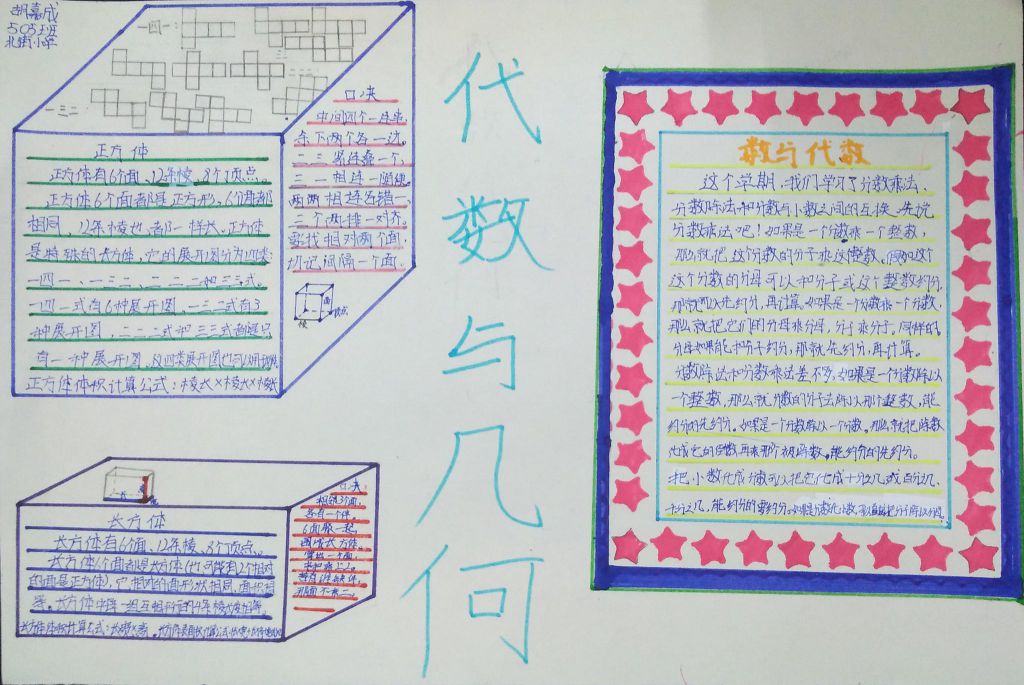 胡嘉成
505班
北街小学
一四一
一三二
口决
中间四个一连串,
余下两个各一边。
二三紧连叠一个,
三一相连一随便。
两两相连各错一,
三个两排一对齐。
要找相对两个面,
切记间隔一个面。
面
顶点
棱
正方体
正方体有6个面、12条棱、8个顶点。
正方体6个面都是正方形,6个面都
相同,12条棱也都一样长。正方体
是特殊的长方体,它的展开图分为四类:
一四一、一三二、二二二和三三式。
一四一式有6种展开图,一三二式有3
种展开图,二二二式和三三式都是只
有一种展开图,这四类展开图也可以用
正方体体积计算公式:棱长×棱长×棱长
长方体
长方体有6个面、12条棱、8个顶点。
长方体6个面都是长方体(也可能有2个相对
的面是正方体),它相对的面形状相同,面积相
等。长方体中每一组互相平行的4条棱长度相等。
长方体体积计算公式:长×宽×高。
口决
相邻3个面,
各自一个样。
6面聚一起,
代数与几何
数与代数
这个学期,我们学习了分数乘法、
分数除法和分数与小数之间的互换。先说
分数乘法吧!如果是一个分数乘一个整数,
那么就把这个分数的分子乘这个整数。假如这个
这个分数的分母可以和分子或这个整数约分,
那就可以先约分,再计算。如果是一个分数乘一个分数,
那么就把它们的分母乘分母,分子乘分子,同样的,
分母如果能和分子约分,那就先约分,再计算。
分数除法和分数乘法差不多,如果是一个分数除以
一个整数,那么就分数的分子去除以那个整数,能
约分的先约分。如果是一个分数除以一个分数。那么就把除数
化成它的倒数再乘那个被除数。能约分的先约分。
把小数化成分数可以把它化成十分之几或百分之几,
千分之几,能约分的要约分。如果是分数化小数,可以直接把分子除以分母。